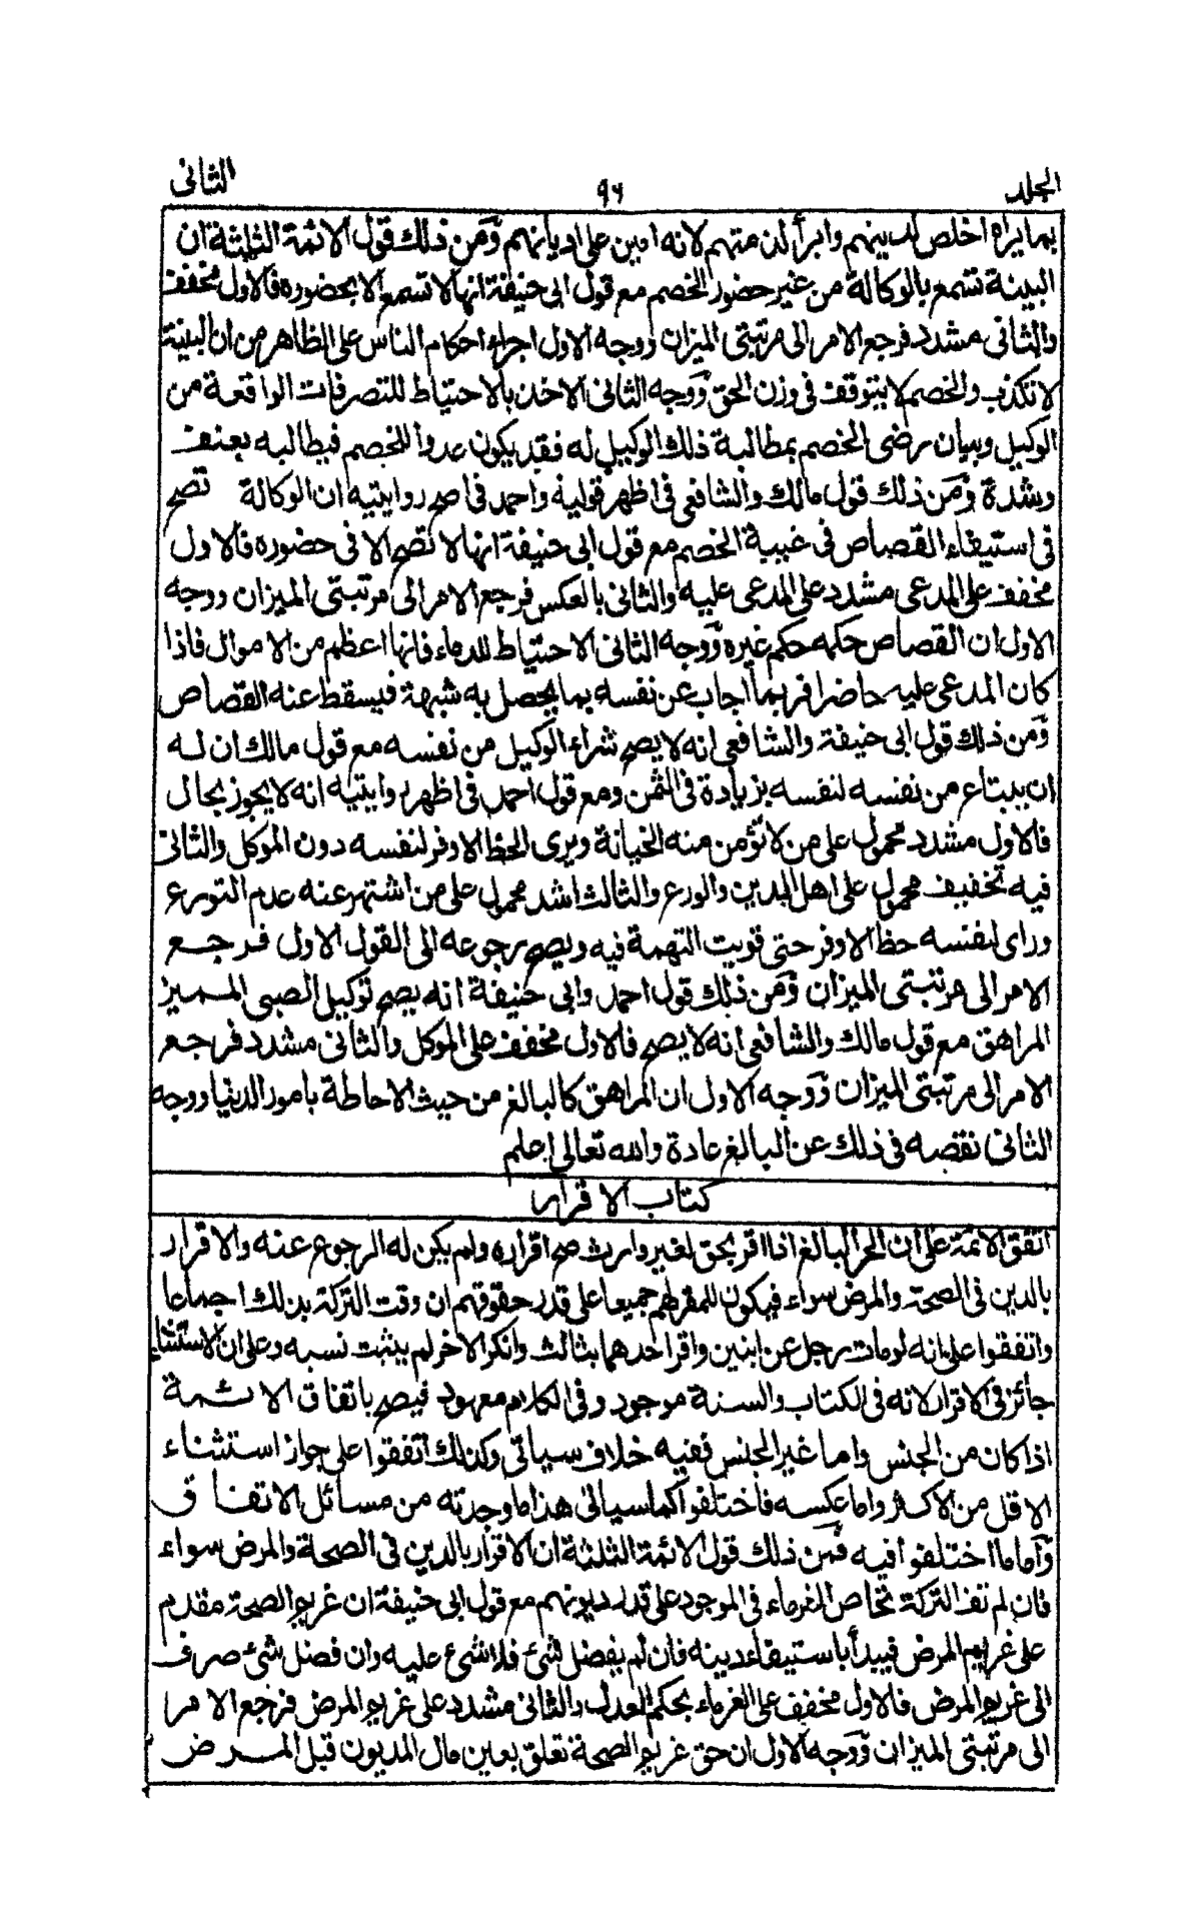 الجلد
٩٦
الثانى
بما يراه اخلص لدينهم وابرأ لذمتهم لانه امين على اديانهم وَمن ذلك قول الائمة الثلثة ان
البينة تسمع بالوكالة من غير حضور الخصم مع قول ابى حنيفة انها لا تسمع الا بحضوره فالاول مخفف
والثانى مشدد فرجع الامر الى مرتبتى الميزان ووجه الاول اجراء احكام الناس على الظاهر من ان البينة
لا تكذب والخصم لا يتوقف فى وزن الحق وَوجه الثانى الاخذ بالاحتياط للتصرفات الواقعة من
الوكيل وبيان رضى الخصم بمطالبة ذلك الوكيل له فقد يكون عدوا للخصم فيطالبه بعنف
وشدة وَمن ذلك قول مالك والشافعى فى اظهر قوليه واحمد فى اصح روايتيه ان الوكالة تصح
فى استيفاء القصاص فى غيبة الخصم مع قول ابى حنيفة انها لا تصح الا فى حضوره فالاول
مخفف على المدعى مشدد على المدعى عليه والثانى بالعكس فرجع الامر الى مرتبتى الميزان ووجه
الاول ان القصاص حكمه حكم غيره وَوجه الثانى الاحتياط للدماء فانها اعظم من الاموال فاذا
كان المدعى عليه حاضرا فربما اجاب عن نفسه بما يحصل به شبهة فيسقط عنه القصاص
وَمن ذلك قول ابى حنيفة والشافعى انه لا يصح شراء الوكيل من نفسه مع قول مالك ان له
ان يبتاع من نفسه لنفسه بزيادة فى الثمن ومع قول احمد فى اظهر روايتيه انه لا يجوز بحال
فالاول مشدد محمول على من لا تؤمن منه الخيانة ويرى الحظ الاوفر لنفسه دون الموكل والثانى
فيه تخفيف محمول على اهل الدين والورع والثالث اشد محمول على من اشتهر عنه عدم التورع
وراى لنفسه حظ الاوفر حتى قويت التهمة فيه ويصح رجوعه الى القول الاول فرجع
الامر الى مرتبتى الميزان وَمن ذلك قول احمد وابى حنيفة انه يصح توكيل الصبى المميز
المراهق مع قول مالك والشافعى انه لا يصح فالاول مخفف على الموكل والثانى مشدد فرجع
الامر الى مرتبتى الميزان وَوجه الاول ان المراهق كالبالغ من حيث الاحاطة بامور الدنيا ووجه
الثانى نقصه فى ذلك عن البالغ عادة والله تعالى اعلم
كتاب الاقرار
اتفق الائمة على ان الحر البالغ اذا اقر بحق لغير وارث صح اقراره ولم يكن له الرجوع عنه والاقرار
بالدين فى الصحة والمرض سواء فيكون للمقر لهم جميعا على قدر حقوقهم ان وقت التركة بذلك اجماعا
واتفقوا على انه لو مات رجل عن ابنين واقر احدهما بثالث وانكر الاخر لم يثبت نسبه وعلى ان الاستثناء
جائز فى الاقرار لانه فى الكتاب والسنة موجود وفى الكلام معهود فيصح باتفاق الائمة
اذا كان من الجنس واما غير الجنس ففيه خلاف سياتى وكذلك اتفقوا على جواز استثناء
الاقل من الاكثر واما عكسه فاختلفوا كما سياتى هذا ما وجدته من مسائل الاتفاق
وَاما ما اختلفوا فيه فَمن ذلك قول الائمة الثلثة ان الاقرار بالدين فى الصحة والمرض سواء
فان لم تف التركة تحاص الغرماء فى الموجود على قدر ديونهم مع قول ابى حنيفة ان غريم الصحة مقدم
على غريم المرض فيبدأ باستيفاء دينه فان لم يفضل شئ فلا شئ عليه وان فضل شئ صرف
الى غريم المرض فالاول مخفف على الغرماء بحكم العدل والثانى مشدد على غريم المرض فرجع الامر
الى مرتبتى الميزان وَوجه الاول ان حق غريم الصحة تعلق بعين مال المديون قبل المرض